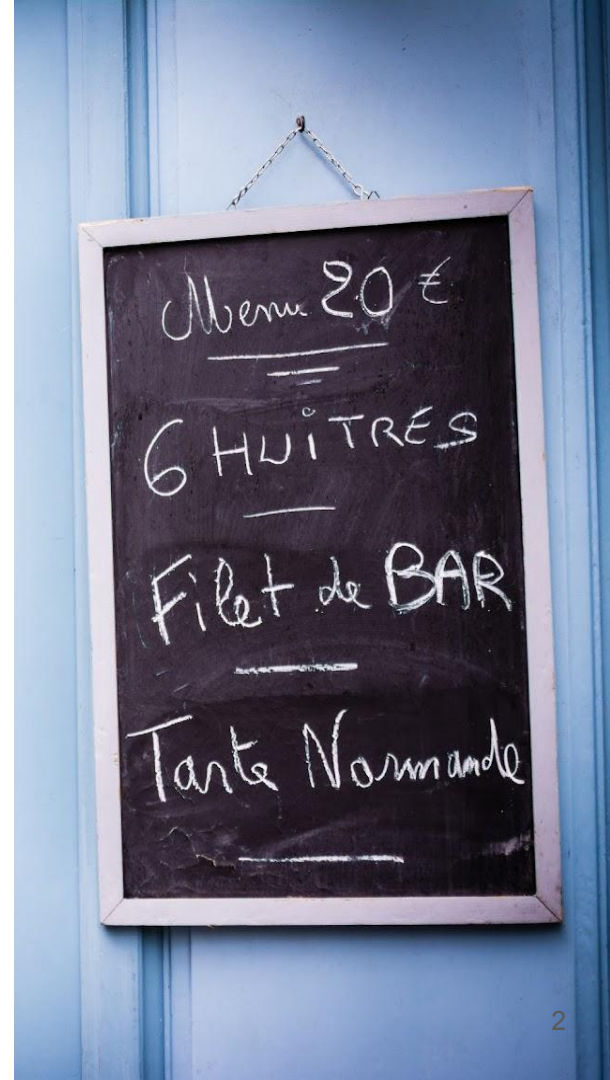 Menu 20 €
6 HUîTRES
Filet de BAR
Tarte Normande
2